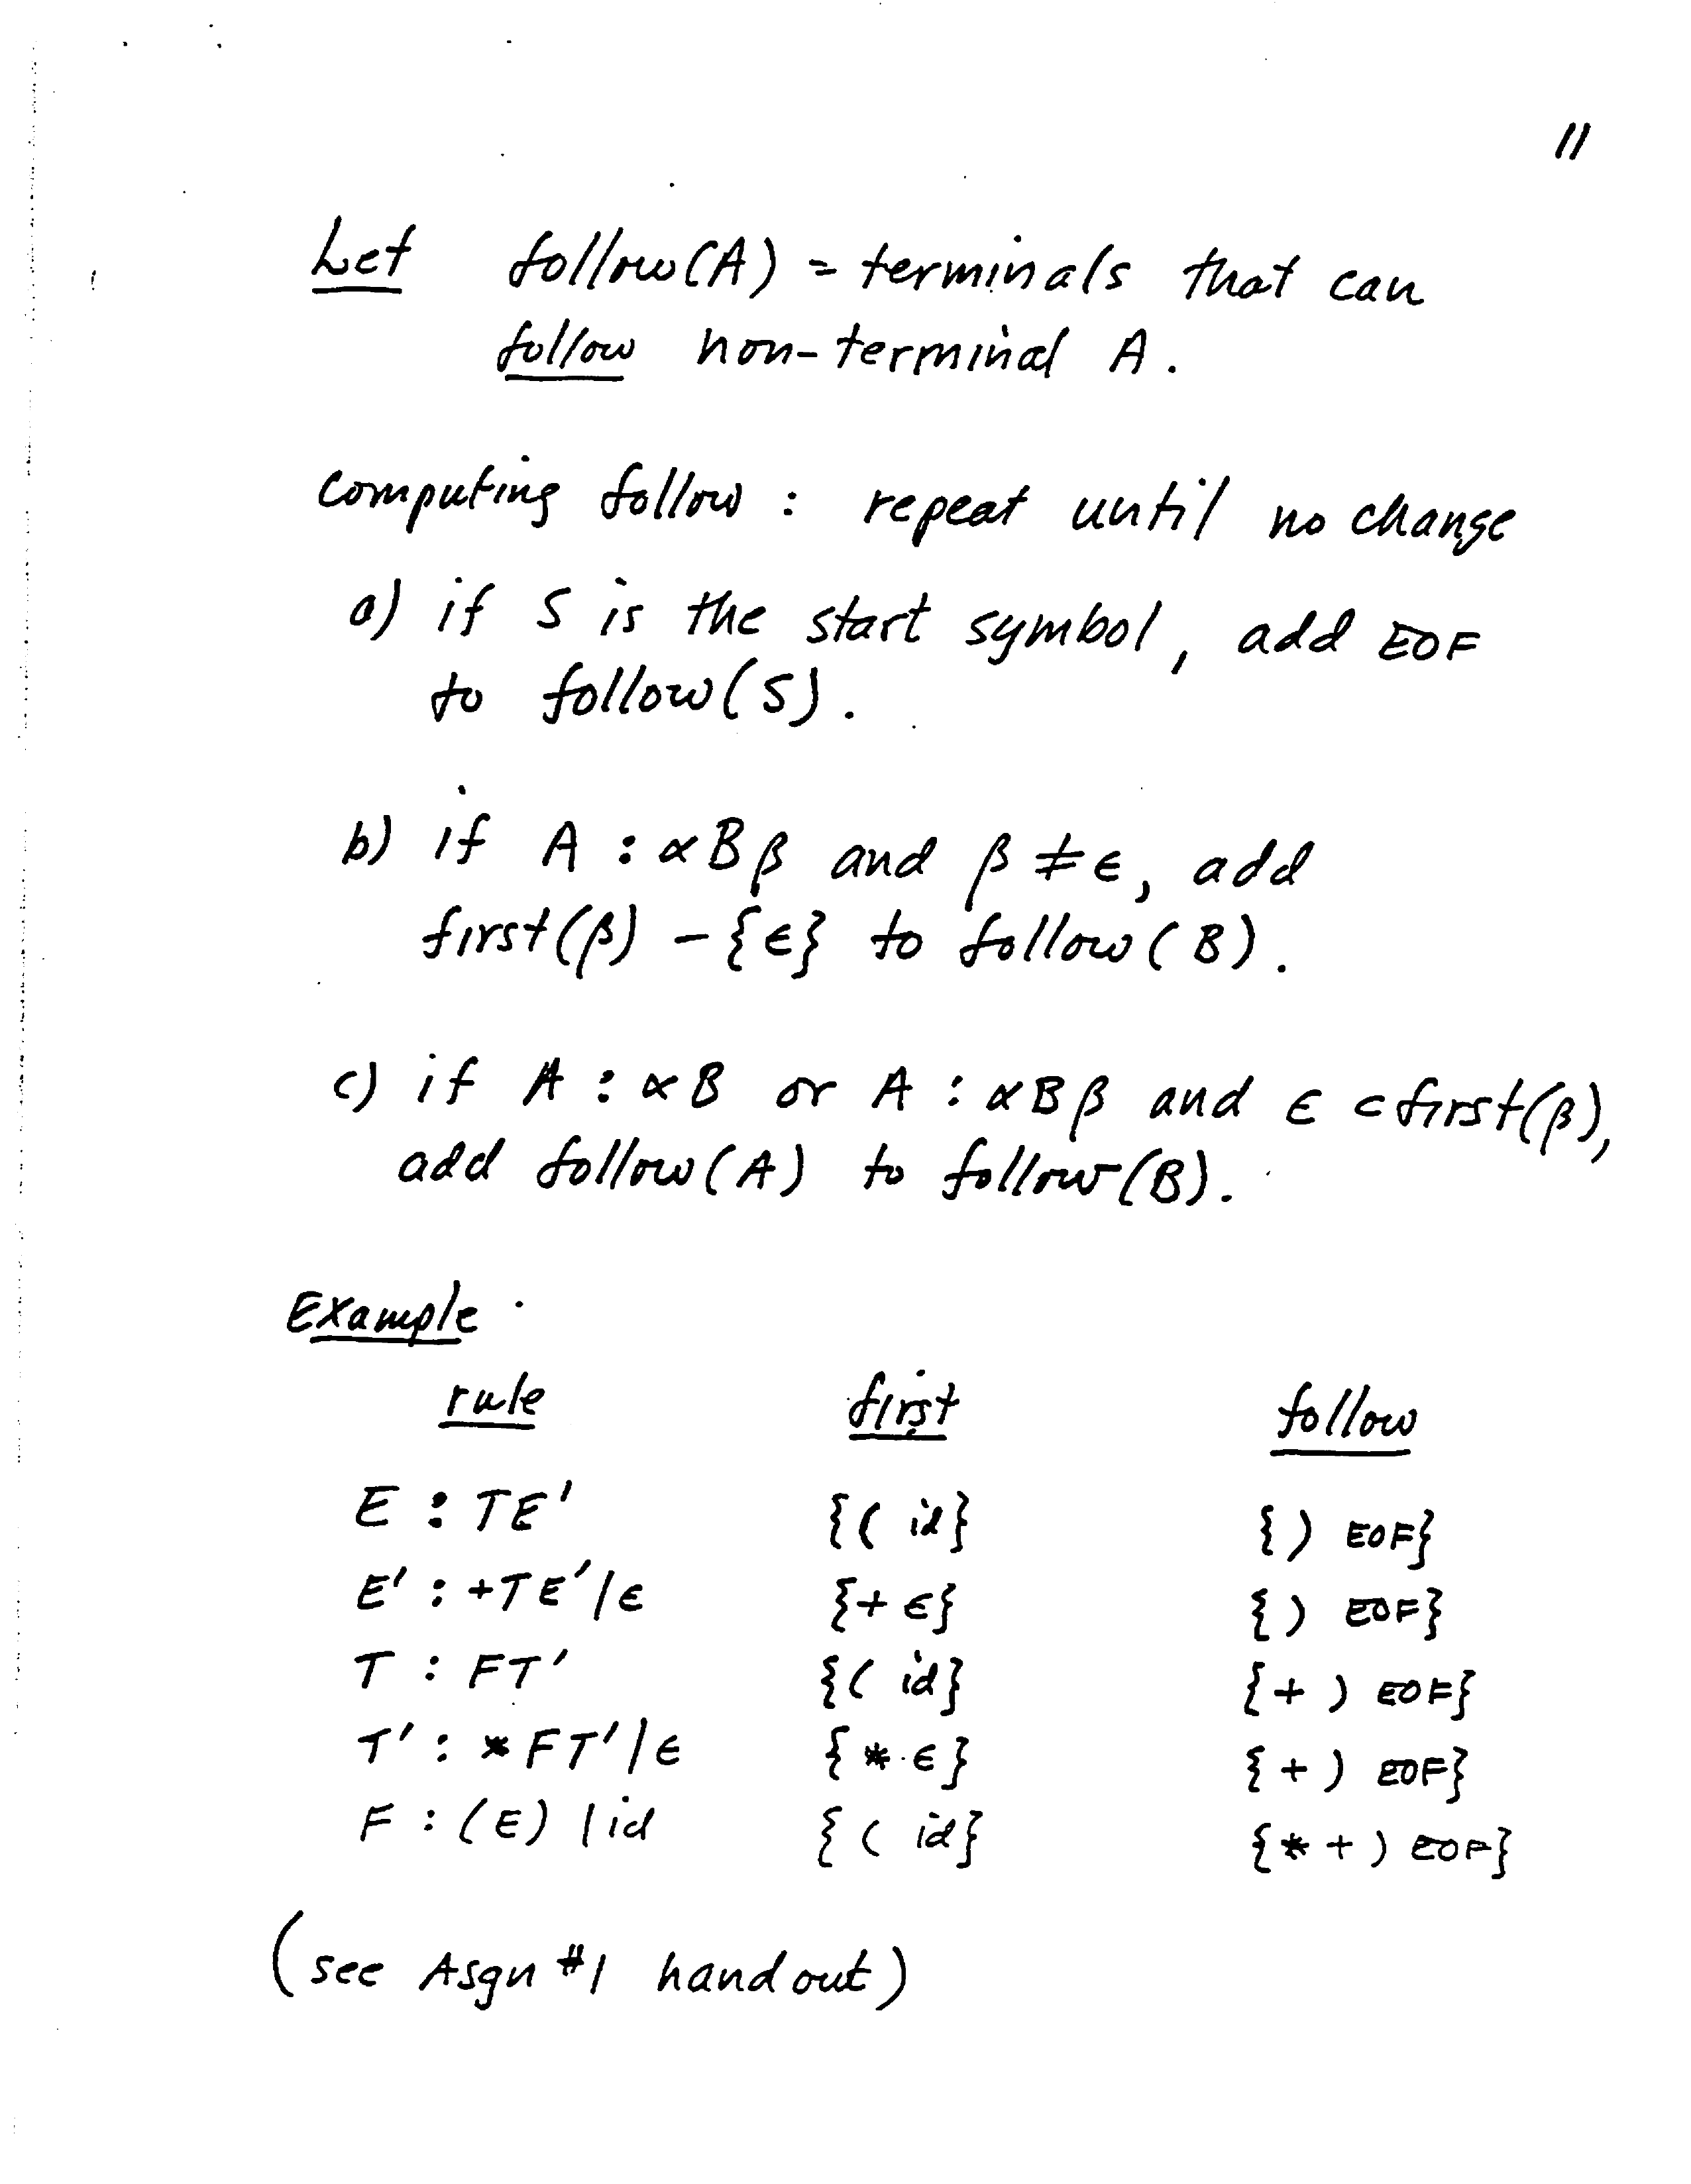 11
Let follow(A) = terminals that can
follow non-terminal A.
Computing follow : repeat until no change
a) if S is the start symbol, add EOF
to follow(S).
b) if A : αBβ and β ≠ ϵ, add
first(β) - {ϵ} to follow(B).
c) if A : αB or A : αBβ and ϵ ⊂ first(β),
add follow(A) to follow(B).
Example
rule first follow
E : TE' {( id} {) EOF}
E' : +TE'|ϵ {+ ϵ} {) EOF}
T : FT' {( id} {+ ) EOF}
T' : *FT'|ϵ {* ϵ} {+ ) EOF}
F : (E) |id {( id} {* + ) EOF}
(see Asgn #1 handout)